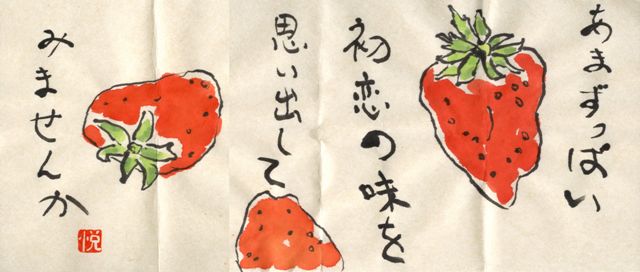 あまずっぱい
初恋の味を
思い出して
みませんか
悦